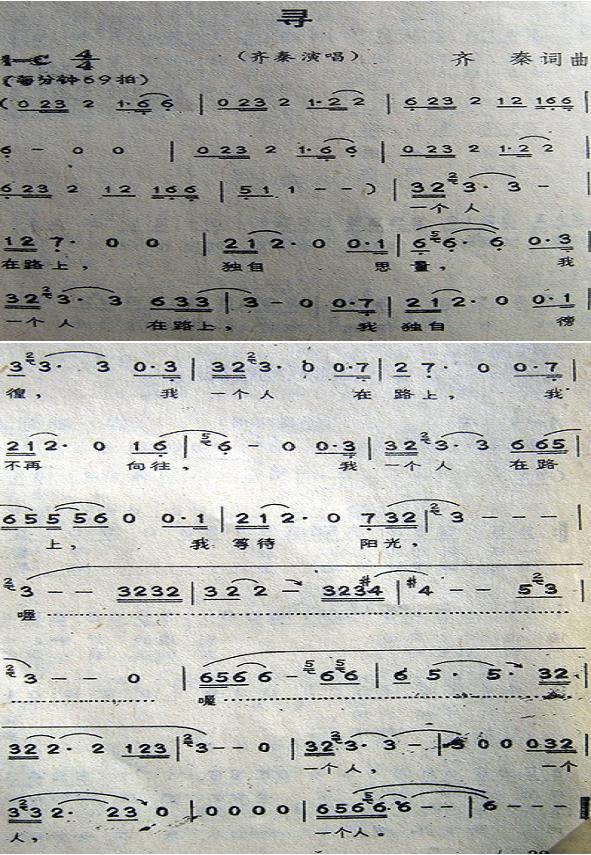 寻
1=C 4/4 （齐秦演唱） 齐 秦词曲
（每分钟69拍）
（0 23 2 1·6 6 | 0 23 2 1·2 2 | 6 23 2 12 166 |
6 - 0 0 | 0 23 2 1·6 6 | 0 23 2 1·2 2 |
6 23 2 12 166 | 51 1 - -） | 32 2 3· 3 - |
一个 人
12 7· 0 0 | 21 2· 0 0·1 | 6 5 6· 6 0·3 |
在路 上， 独自 思 量， 我
32 2 3· 3 633 | 3 - 0 0·7 | 21 2· 0 0·1 |
一个 人 在路上， 我 独自 徬
3 2 3· 3 0·3 | 32 2 3· 0 0·7 | 2 7· 0 0·7 |
徨， 我 一个人 在 路上， 我
21 2· 0 16 | 5 6 - 0 0·3 | 32 2 3· 3 665 |
不再 向往， 我 一个 人 在路
655 56 0 0·1 | 21 2· 0 732 | 2 3 - - - |
上， 我 等待 阳光，
2 3 - - 3232 | 32 2 - 323#4 | #4 - - 5 2 3 |
喔
2 3 - - 0 | 656 6 - 5 6 5 6 | 6 5· 5· 32· |
喔
32 2· 2 123 | 2 3 - - 0 | 32 2 3· 3 - | 3 0 0 032 |
一个 人， 一个
3 2 3 2· 23 0 | 0 0 0 0 | 6566· 6 - - | 6 - - -
人， 一个人。